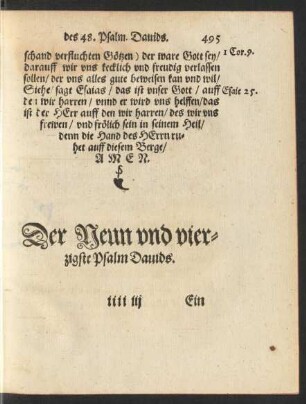 des 48. Psalm. Dauids. 495
schand verfluchten Götzen) der ware Gott sey/ 1 Cor. 9.
darauff wir vns kecklich vnd freudig verlassen
sollen/ der vns alles gute beweisen kan vnd wil/
Siehe/ sagt Esaias/ das ist vnser Gott/ auff Esaie 25.
den wir harren/ vnnd er wird vns helffen/ das
ist der HErr auff den wir harren/ des wir vns
frewen/ vnd frölich sein in seinem Heil/
denn die Hand des HErrn ru-
het auff diesem Berge/
A M E N.
Der Neun vnd vier-
zigste Psalm Dauids.
iiii iij Ein